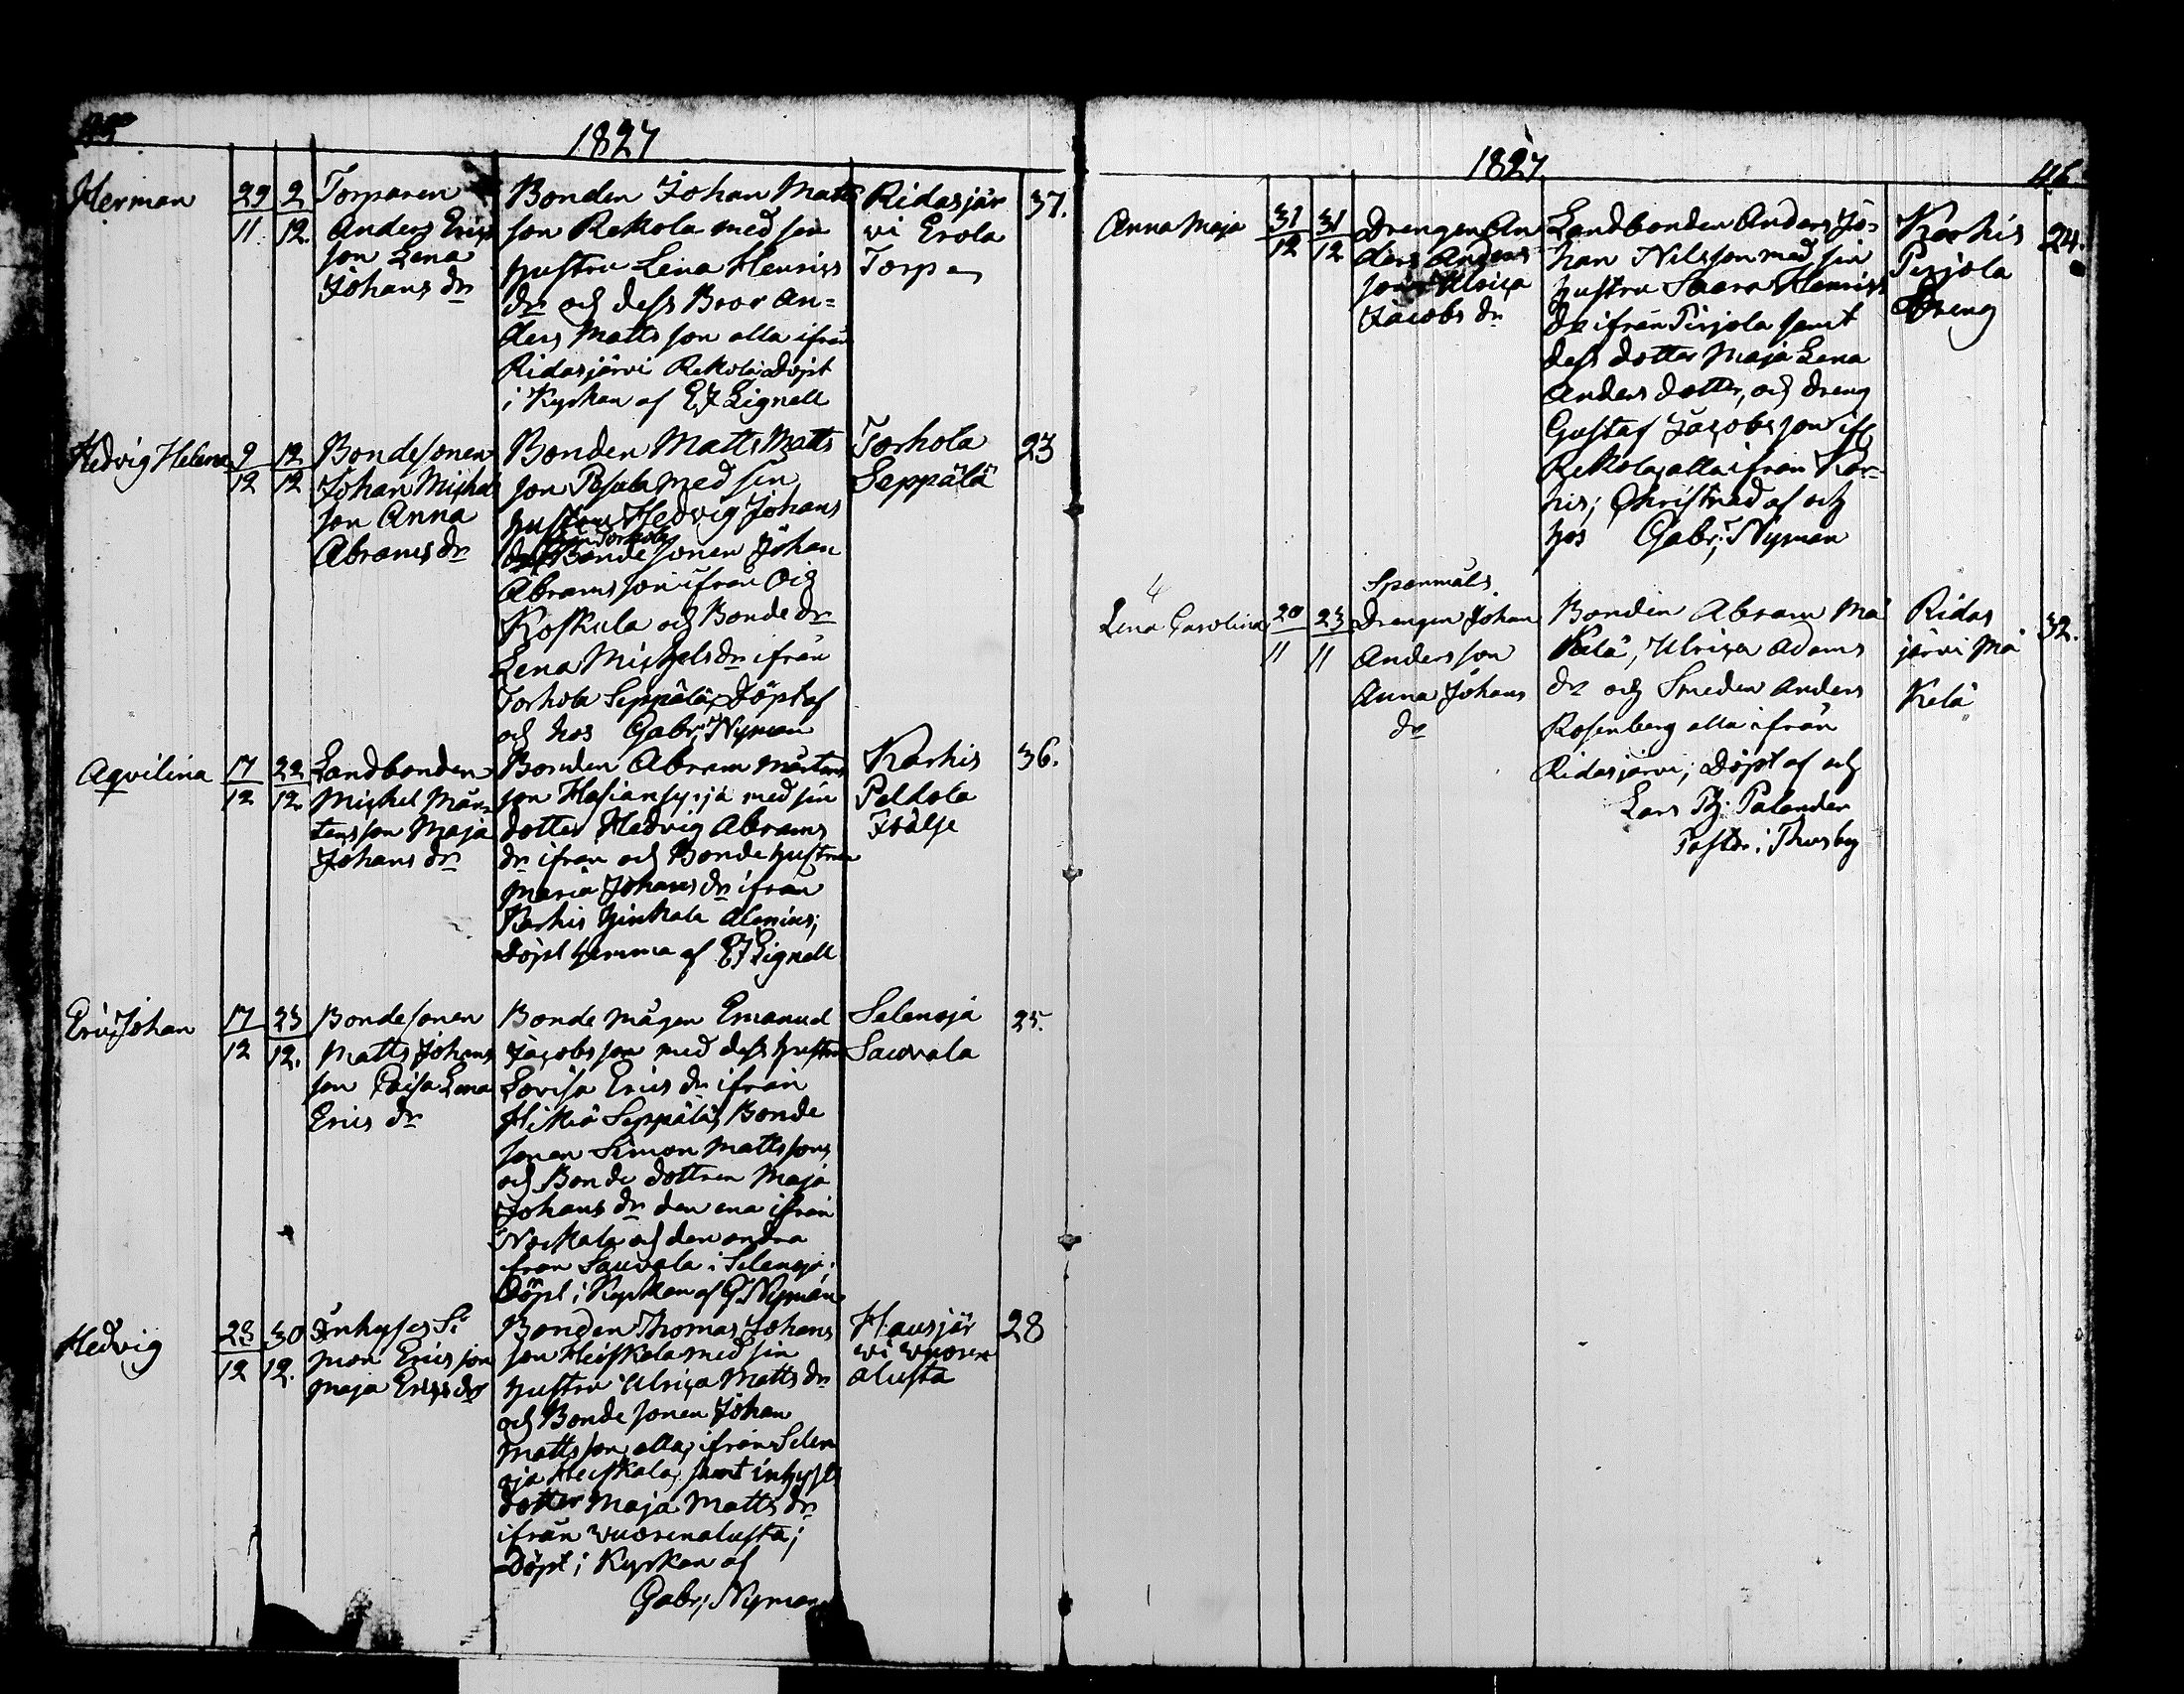 1827
Herman 29/11. 2/12. Torparen
Anders Erics
son Lena
Johans dr
Bonden Johan Matts
son Rekola med sin
hustru Lena Henrics
dr och dess Bror An=
ders Matts son alla ifrån
Ridasjärvi Rekola Döpt
i Kyrkan af E J Lignell
Ridasjär
vi Erola
Torp
37.
Hedvig Helena 9/12 12/12 Bondesonen
Johan Michels
son Anna
Abrams dr
Bonden Matts Matts
son med sin
hustru Hedvig Johans
dr från Torhola
Bondesonen Johan
Abrams son ifrån Oi
Koskula och Bonde dr
Lena Michels dr ifrån
Torhola Seppälä, Döpt af
och hos Gabr: Nyman
Torhola
Seppälä
23
Aqvilina 17/12 22/12. Landbonden
Michel Mår=
tensson Maja
Johans dr
Bonden Abram Mårtens
son med sin
dotter Hedvig Abrams
dr ifrån och Bonde hustrun
Maria Johans dr ifrån
Karhis Hinkala Alanius;
Döpt hemma af E J Lignell
Karhis
Paldola
36.
Eric Johan 17/12 23/12. Bondesonen
Matts Johans
son Caisa Lena
Erics dr
Bonde mågen Emanuel
Jacobs son med dess hustru
Lovisa Erics dr ifrån
Hikiä Seppälä, Bonde
sonen Simon Mattssons
och Bonde dottren Maja
Johans dr den ena ifrån
och den andra
från Sauvala i Selenoja.
Döpt i Kyrkan af G Nyman
Selenoja
Sauvala
25.
Hedvig 23/12 30/12. Inhyses Si
mon Erics son
Maja Erics dr
Bonden Thomas Johans
son Heiskala med sin
hustru Ulrica Matts dr
och Bonde sonen Johan
Matts son, alla, ifrån Selen
oja Heiskala, samt inhyses
dotter Maja Matts dr
ifrån Wuorenalusta;
Döpt i Kyrkan af
Gabr; Nyman
Hausjär
vi Wuoren
alusta
28
1827.
46.
Anna Maja 31/12 31/12 Drengen An
ders Anders
son Ulrica
Jacobs dr
Landbonden Anders Jo=
han Nilsson med sin
hustru Saara Henrics
dr ifrån Pirjola samt
dess dotter Maja Lena
Anders dotter, och dreng
Gustaf Jacobsson ifr
Rekola, alla ifrån Kar=
his; Christnad af och
hos Gabr; Nyman
Karhis
Pirjola
Dreng
24.
4
Lena Carolina 20/11 23/11 Spanmåls.
Drengen Johan
Andersson
Anna Johans
dr
Bonden Abram Mä
kelä, Ulrica Adams
dr och Smeden Anders
Rosenberg alla ifrån
Ridasjärvi; Döpt af och
Lars Palander
Pastor i Thusby
Ridas
järvi Mä
kelä
32.